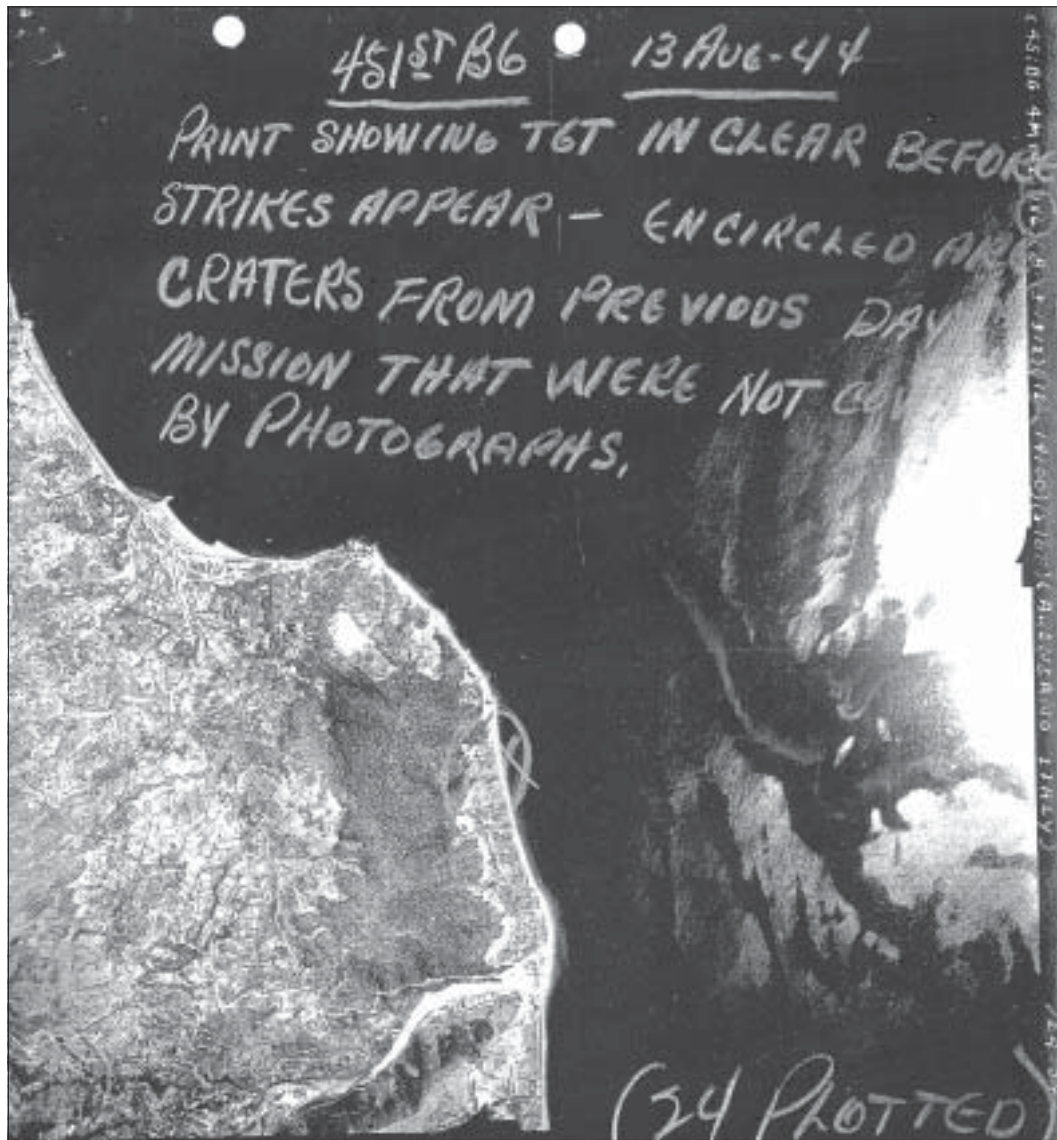 451ST BG 13 AUG-44
PRINT SHOWING TGT IN CLEAR BEFORE
STRIKES APPEAR - ENCIRCLED ARE
CRATERS FROM PREVIOUS DAY
MISSION THAT WERE NOT
BY PHOTOGRAPHS.
(24 PLOTTED)